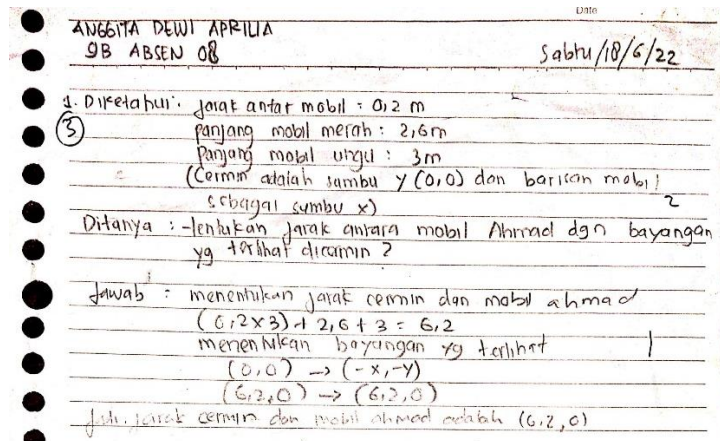 Date
ANGGITA DEWI APRILIA
9B ABSEN 08
Sabtu/18/6/22
1. Diketahui : Jarak antar mobil : 0,2 m
③ panjang mobil merah : 2,6m
Panjang mobil ungu : 3m
(Cermin adalah sumbu y (0,0) dan barisan mobil
sebagai sumbu x) 2
Ditanya : -tentukan jarak antara mobil Ahmad dgn bayangan
yg terlihat dicermin ?
Jawab : menentukan jarak cermin dan mobil ahmad
(0,2x3) + 2,6 + 3 = 6,2
menentukan bayangan yg terlihat 1
(0,0) -> (-x,-y)
(6,2,0) -> (6,2,0)
Jadi. jarak cermin dan mobil ahmad adalah (6,2,0)